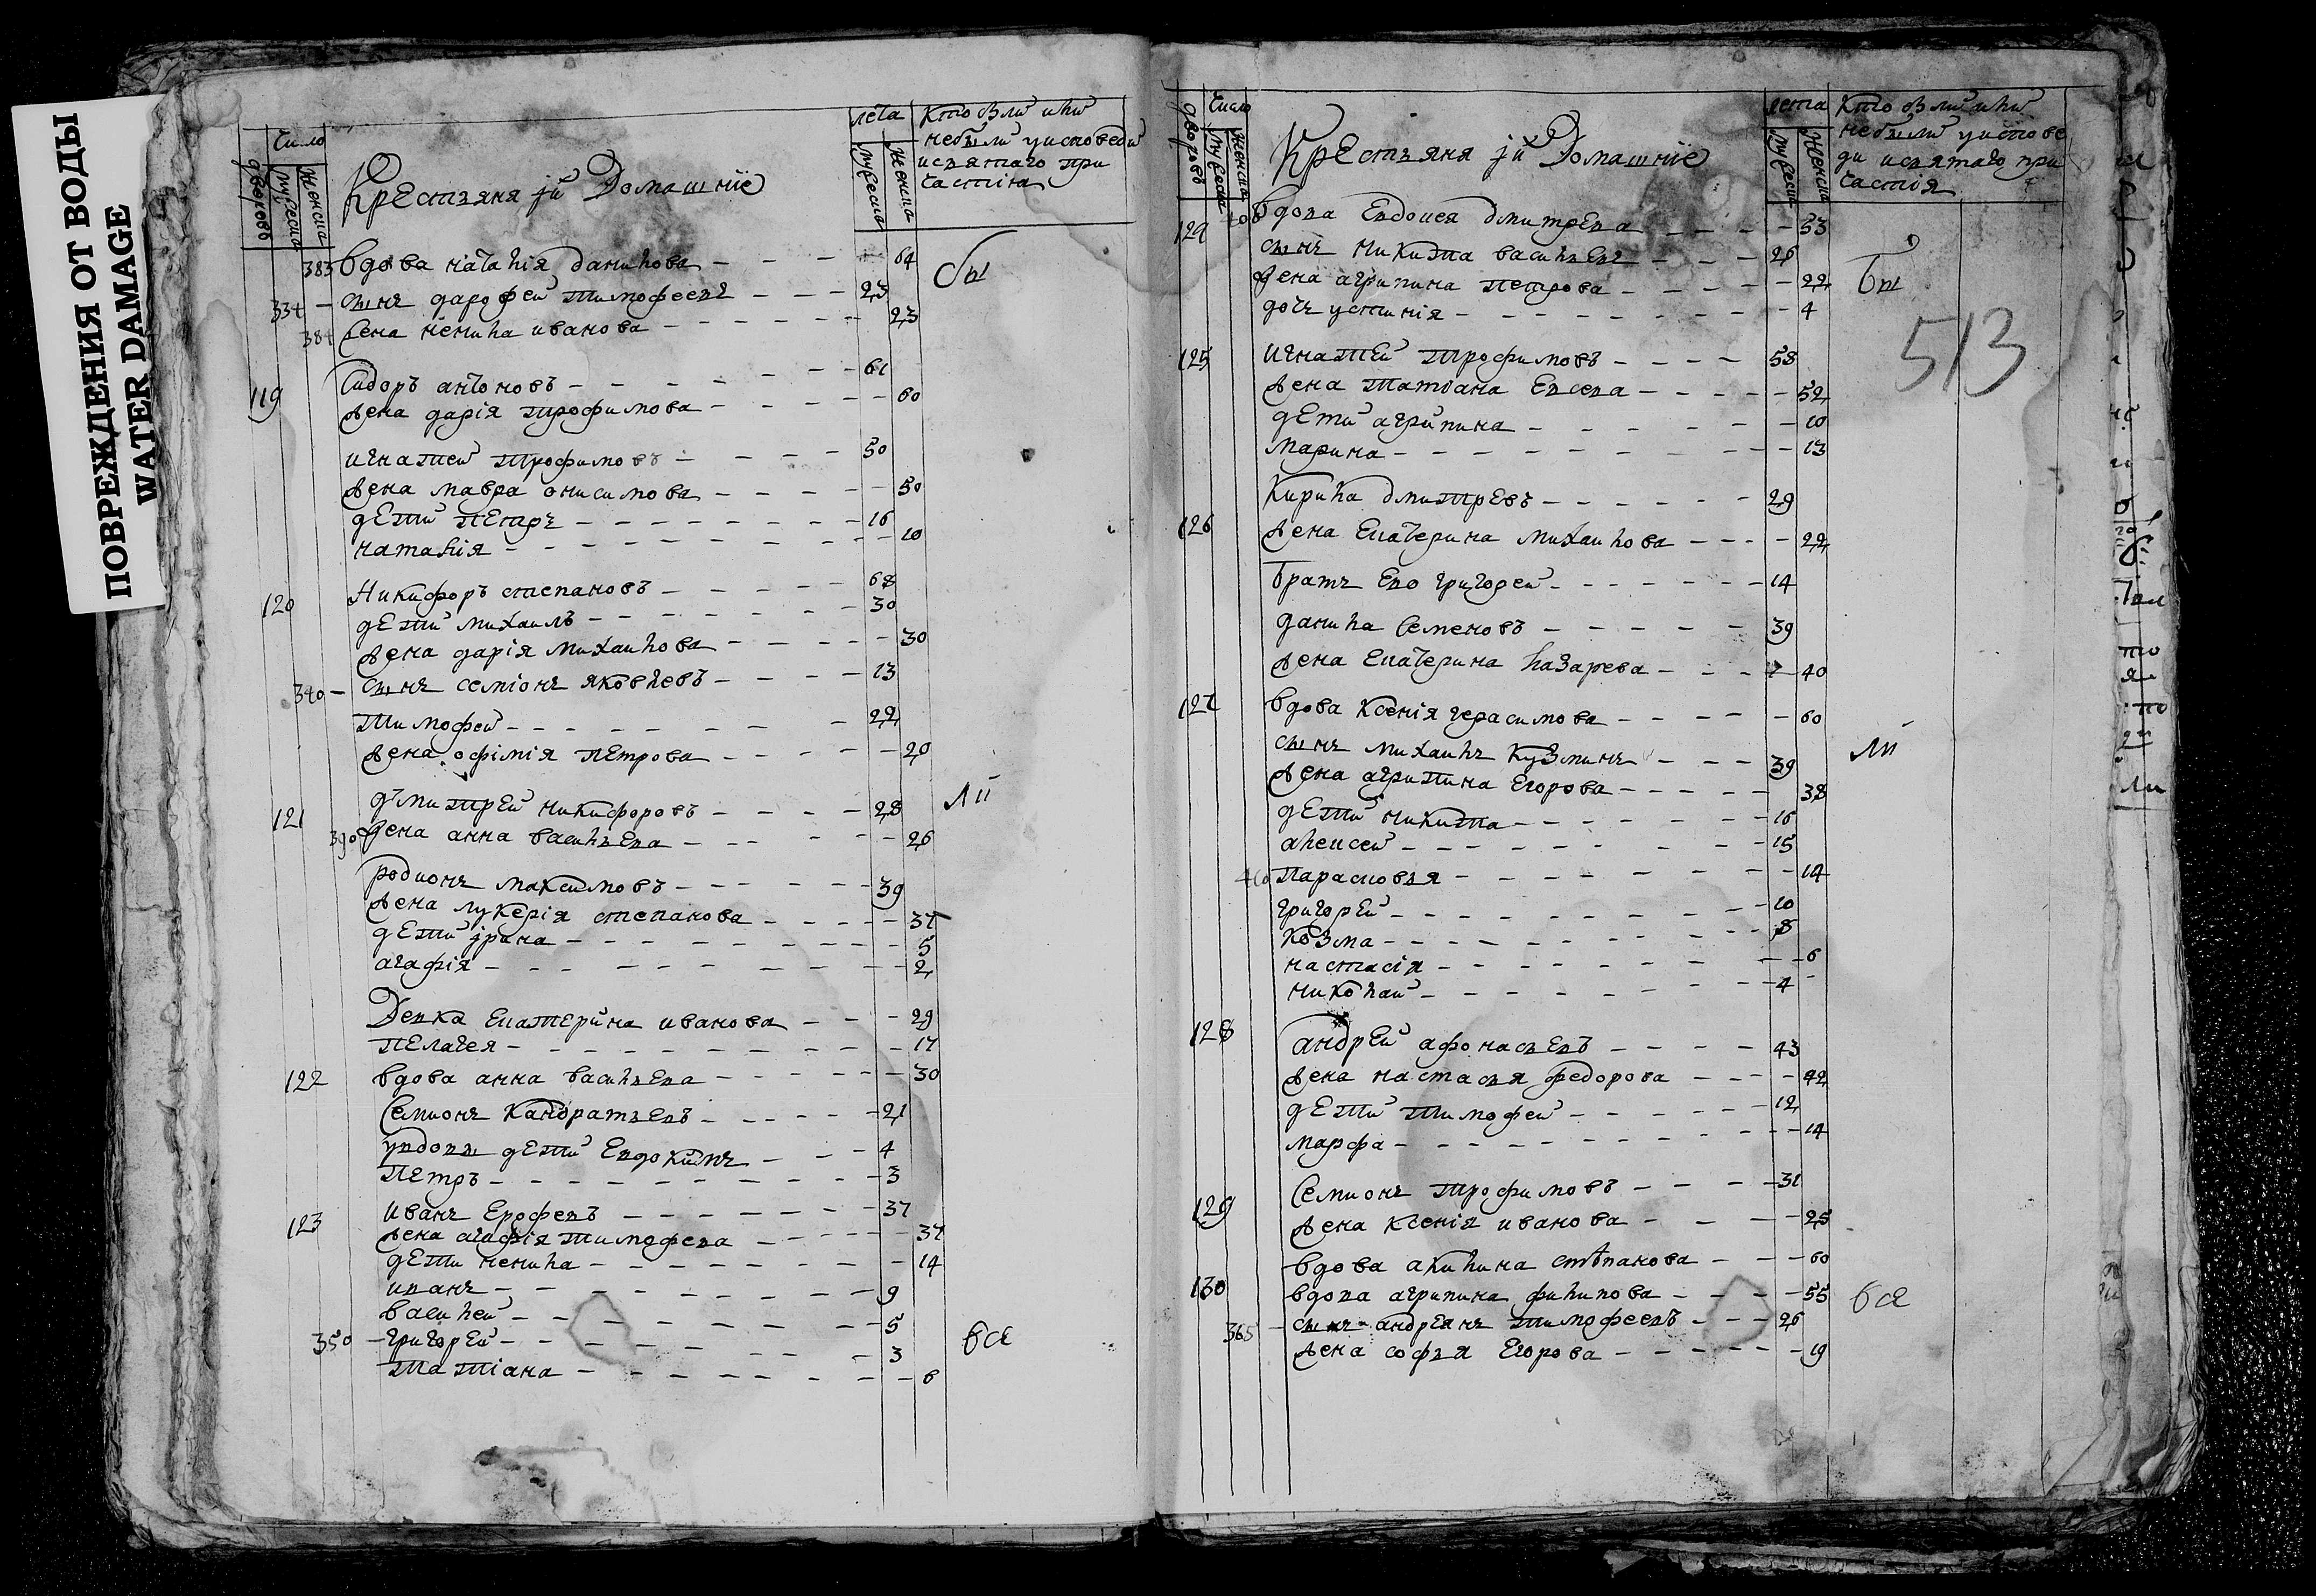 ПОВРЕЖДЕНИЯ ОТ ВОДЫ
WATER DAMAGE
Число
дворовъ
мужеска
женска
Крестьяня и Домашніе
лета
мужеска
женска
Кто были или
небыли уисповеди
исвятаго при
частия
383 Вдова наталия данилова 64
334 сынъ дарофеи тимофеевъ 23
384 Жена ненила иванова 23
бы
119 Сидоръ антоновъ 61
Жена дарія трофимова 60
игнатеи трофимовъ 50
Жена мавра онисимова 50
дети петръ 16
наталия 10
120 Никифоръ степановъ 68
дети михаилъ 30
Жена дарія михаилова 30
340 сынъ семіонъ яковлевъ 13
тимофеи 22
Жена офімія петрова 20
ли
121 дъмитреи никифоровъ 28
390 Жена анна васильева 26
родионъ максимовъ 39
Жена лукерія степанова 37
дети ірина 5
агафія 2
Девка екатерина иванова 29
пелагея 17
122 вдова анна васильева 30
Семионъ кандратьевъ 21
удовы дети евдокимъ 4
петръ 3
123 иванъ ерофевъ 37
Жена агафія тимофева 37
дети ненила 14
иванъ 9
василеи 5
350 григореи 3
татіана 6
все
Число
дворовъ
мужеска
женска
Крестьяня и Домашніе
лета
мужеска
женска
Кто были или
небыли уиспове
ди исвятаго при
частія
124 400 Вдова евдокея дмитрева 53
сынъ никита васильевъ 26
Жена агрипина петрова 22
дочь устинія 4
бы
513
125 игнатеи трофимовъ 58
Жена татиана евсева 52
дети агрипина 10
марина 13
Кирила дмитревъ 29
126 Жена екатерина михаилова 22
братъ ево григореи 14
данила семеновъ 39
Жена екатерина лазарева 40
127 вдова ксенія герасимова 60
сынъ михаилъ кузминъ 39
ли
Жена агрипина егорова 38
дети никита 16
алексеи 15
410 парасковья 14
григореи 10
козма 8
настасія 6
николаи 4
128 андреи афонасьевъ 43
Жена настасья федорова 42
дети тимофеи 12
марфа 14
Семионъ трофимовъ 31
129 Жена ксенія иванова 25
вдова акилина степанова 60
130 вдова агрипина филипова 55
все
365 сынъ андреянъ тимофеевъ 26
Жена софья егорова 19